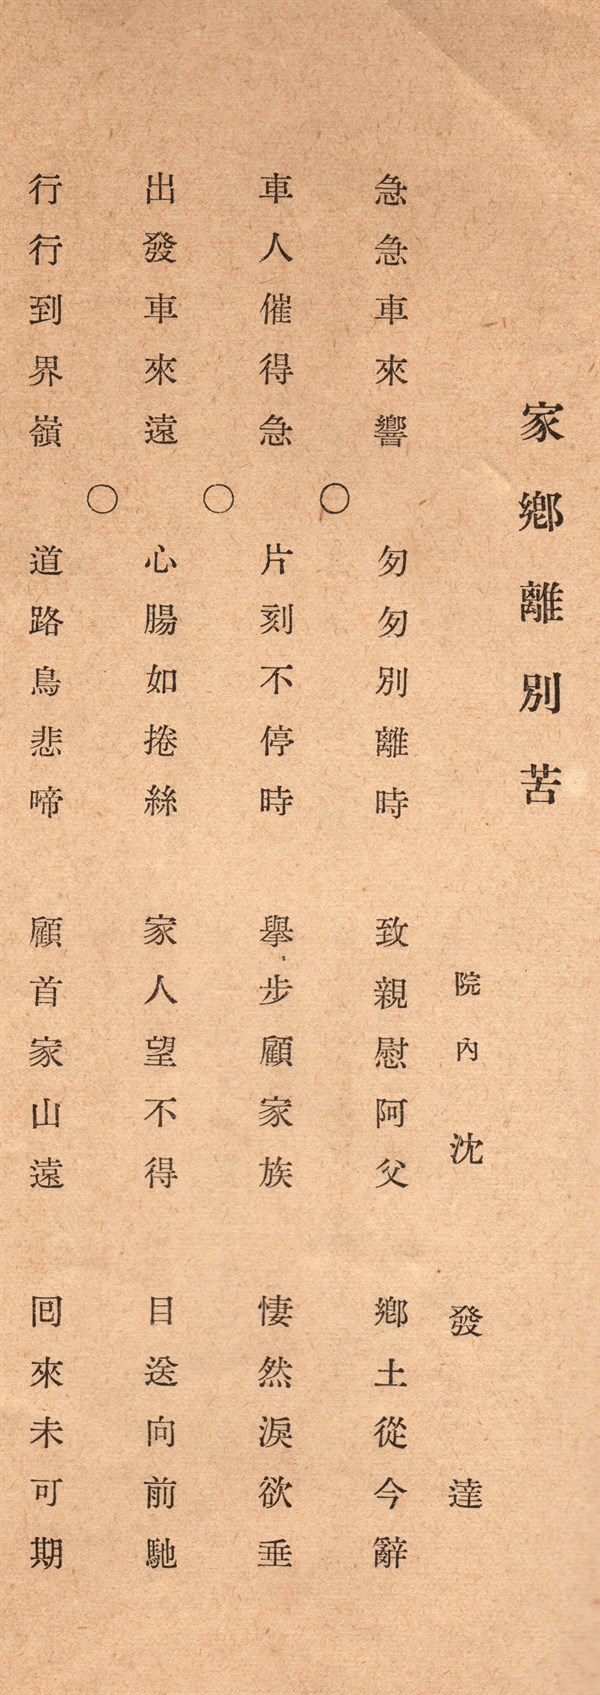 家鄉離別苦
院內 沈發達
急急車來響 匆匆別離時 致親慰阿父 鄉土從今辭
○
車人催得急 片刻不停時 舉步顧家族 悽然淚欲垂
○
出發車來遠 心腸如捲絲 家人望不得 目送向前馳
○
行行到界嶺 道路鳥悲啼 顧首家山遠 囘來未可期